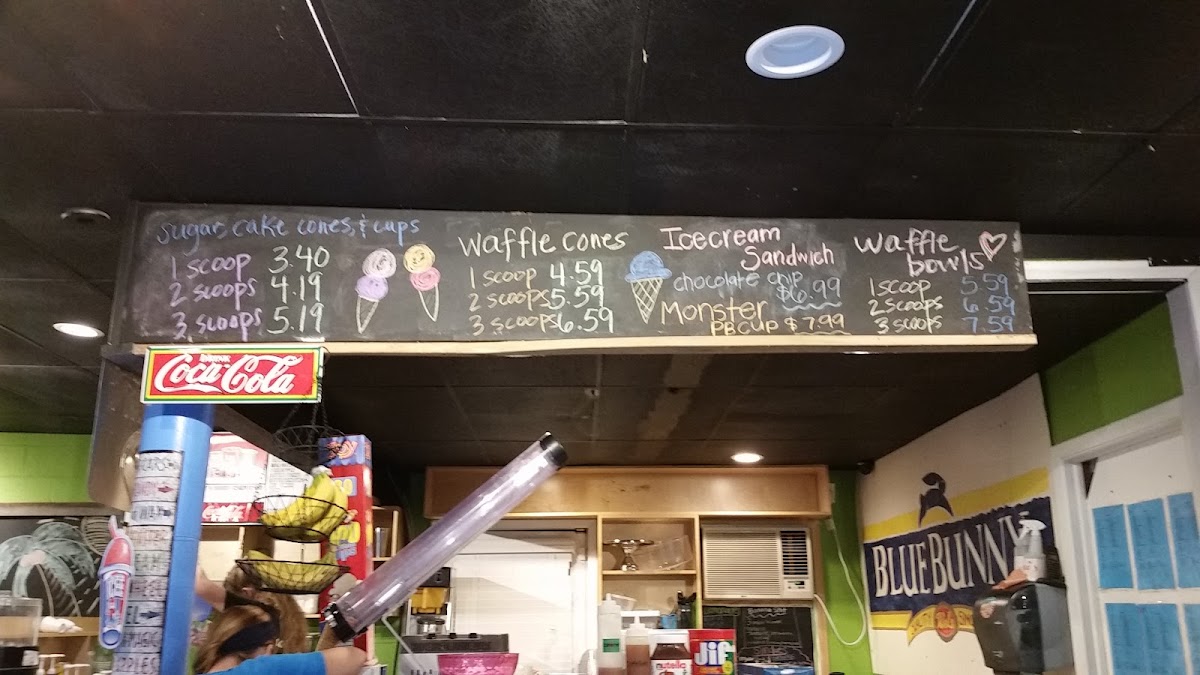 Sugar cake cones, & cups
1 scoop 3.40
2 scoops 4.19
3 scoops 5.19
Waffle cones
1 scoop 4.59
2 scoops 5.59
3 scoops 6.59
Icecream
Sandwich
chocolate chip
$6.99
Monster
PB CUP $7.99
Waffle
bowls
1 scoop 5.59
2 scoops 6.59
3 scoops 7.59
DRINK
Coca-Cola
BLUE BUNNY
nutella
Jif